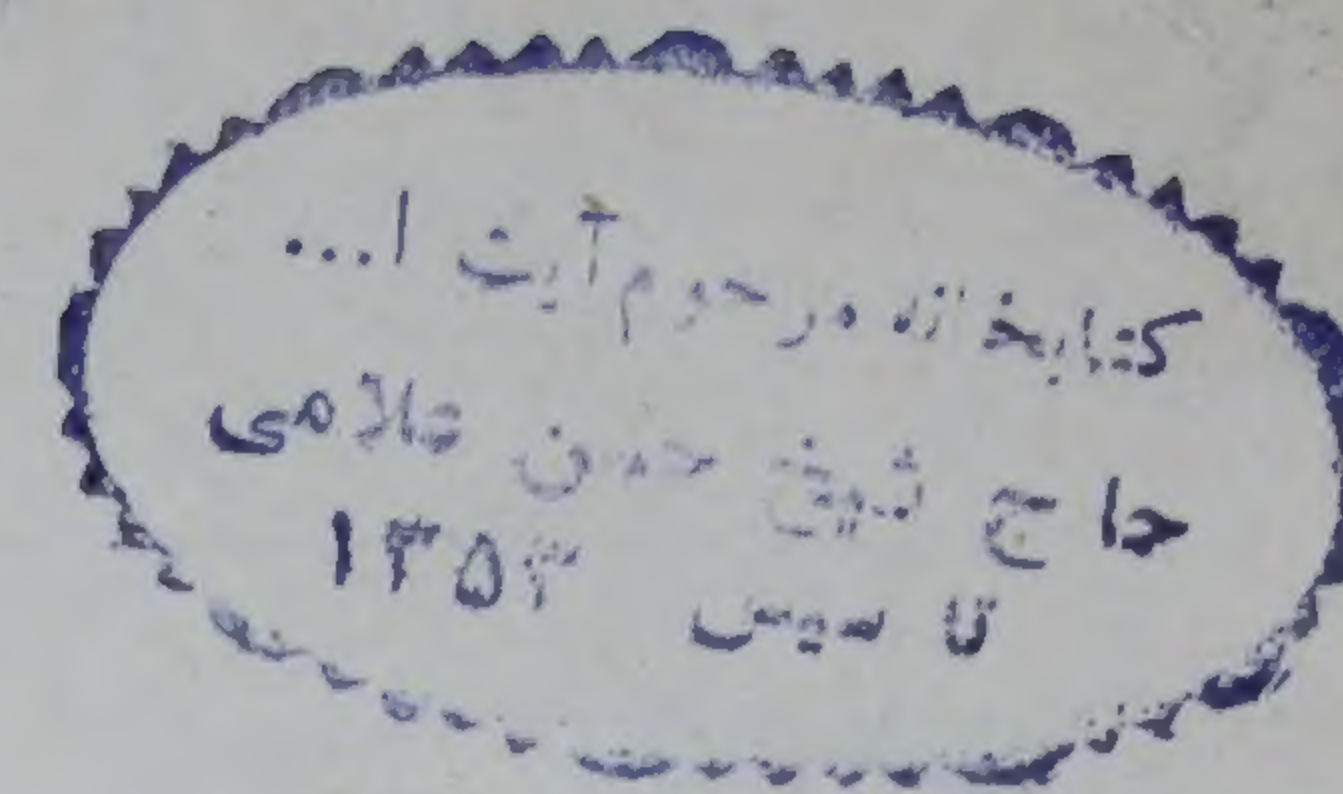 کتابخانه مرحوم آیت ا...
حاج شیخ حسن علامی
تاسیس ۱۳۵۳